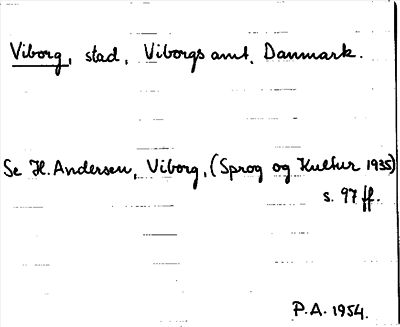 Viborg, stad, Viborgs amt, Danmark.
Se H. Andersen, Viborg, (Sprog og Kultur 1935)
s. 97 ff.
P.A. 1954.